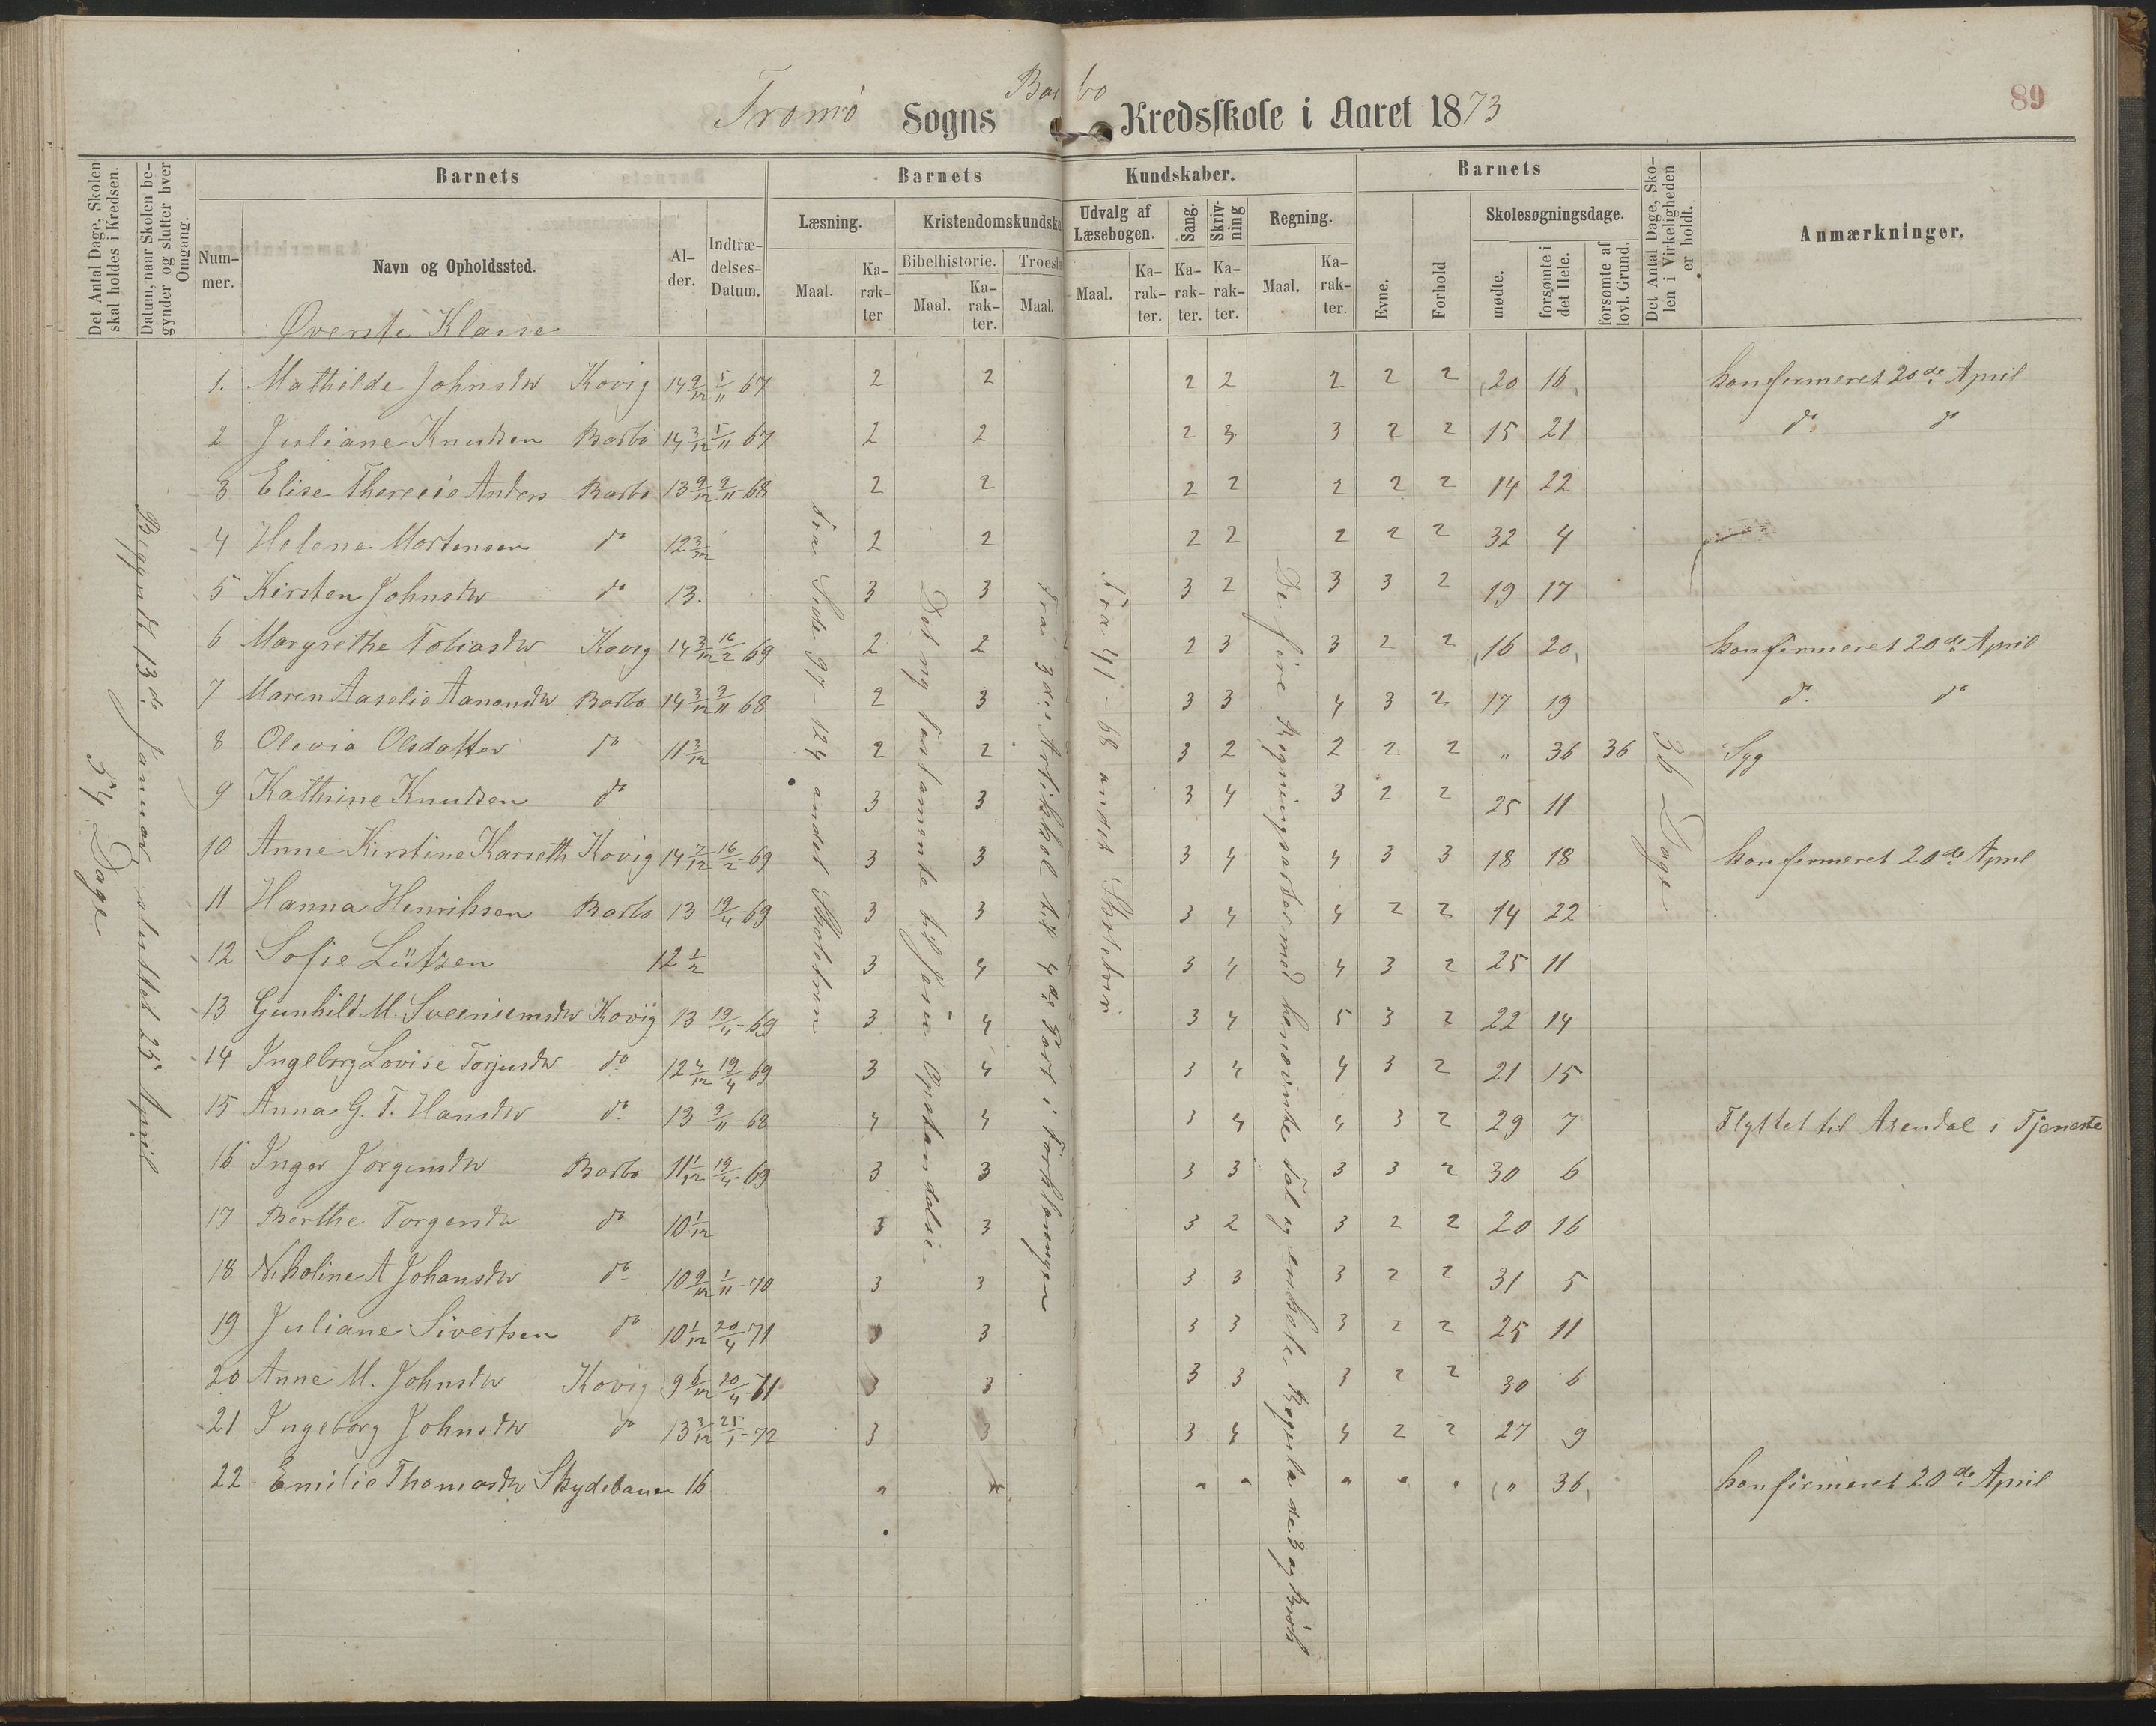 Tromø Sogns Barbo Kredsskole i Aaret 1873
89
Det Antal Dage, Skolen skal holdes i Kredsen.
Datum, naar Skolen begynder og slutter hver Omgang.
Barnets
Nummer.
Navn og Opholdssted.
Alder.
Indtrædelses-Datum.
Barnets Kundskaber.
Læsning.
Maal.
Karakter
Kristendomskundska
Bibelhistorie.
Maal.
Karakter.
Troesl
Maal.
Udvalg af Læsebogen.
Maal.
Karakter.
Sang.
Karakter.
Skrivning
Karakter.
Regning.
Maal.
Karakter.
Barnets
Evne.
Forhold
Skolesøgningsdage.
mødte.
forsømte i det Hele.
forsømte af lovl. Grund.
Det Antal Dage, Skolen i Virkeligheden er holdt.
Anmærkninger.
Øverste Klasse
1. Mathilde Johnsdtr Kovig 14 9/12 5/11 67 2 2 2 2 2 2 2 20 16 konfirmeret 20de April
2 Juliane Knudsen Barbo 14 3/12 5/11 67 2 2 2 3 3 2 2 15 21 do do
3 Elise Theresie Anders Barbo 13 9/12 9/11 68 2 2 2 2 2 2 2 14 22
4 Helene Mortensen do 12 3/12 2 2 2 2 2 2 2 32 4
5 Kirsten Johnsdtr do 13. 3 3 3 2 3 3 2 19 17
6 Margrethe Tobiasdtr Kovig 14 3/12 16/2 69 2 2 2 3 3 2 2 16 20 konfirmeret 20de April
7 Maren Aaselie Aanonsdtr Barbo 14 3/12 9/11 68 2 3 3 3 4 3 2 17 19 do do
8 Olevia Olsdatter do 11 3/12 2 2 3 2 2 2 2 " 36 36 Syg
9 Kathrine Knudsen do 3 3 3 4 3 2 2 25 11
10 Anne Kirstine Karseth Kovig 14 7/12 16/2 69 3 3 3 4 4 3 3 18 18 konfirmeret 20de April
11 Hanna Henriksen Barbo 13 19/4-69 3 3 3 4 4 2 2 14 22
12 Sofie Lützen 12 1/2 3 4 3 4 4 3 2 25 11
13 Gunhild M. Kovig 13 19/4-69 3 4 3 4 5 3 2 22 14
14 Ingeborg Lovise Torjusdtr do 12 4/12 19/4 69 3 4 3 4 4 3 2 21 15
15 Anna G. T. Hansdtr do 13 9/11-68 4 4 3 4 4 3 2 29 7 Flyttet til Arendal i Tjeneste
16 Inger Jørgensdtr Barbo 11 1/12 19/4-69 3 3 3 3 3 3 2 30 6
17 Berthe Torgersdtr do 10 1/12 3 3 3 2 3 2 2 20 16
18 Nikoline A Johansdtr do 10 9/12 1/11-70 3 3 3 3 3 2 2 31 5
19 Juliane Sivertsen do 10 1/12 20/4-71 3 3 3 3 3 2 2 25 11
20 Anne M. Johnsdtr Kovig 9 6/12 20/4-71 3 3 3 3 3 2 2 30 6
21 Ingeborg Johnsdtr do 13 3/12 25/1-72 3 3 3 4 4 2 2 27 9
22 Emilie Thomasdtr Skydebanen 16 " " " " " " " 36 konfirmeret 20de April
54 Dage
Begyndt 13de Januar sluttet 25de April
Fra Side 97-124 andet Skoletrin
Det ny Testamente til Jesu Opstandelse
Fra 3die Artikkel til 4de Part i Forklaringen
Fra 41-66 andet Skoletrin
De fire Regningsarter med benævnte Tal og enkelte Regula detri og Brøk
36 Dage